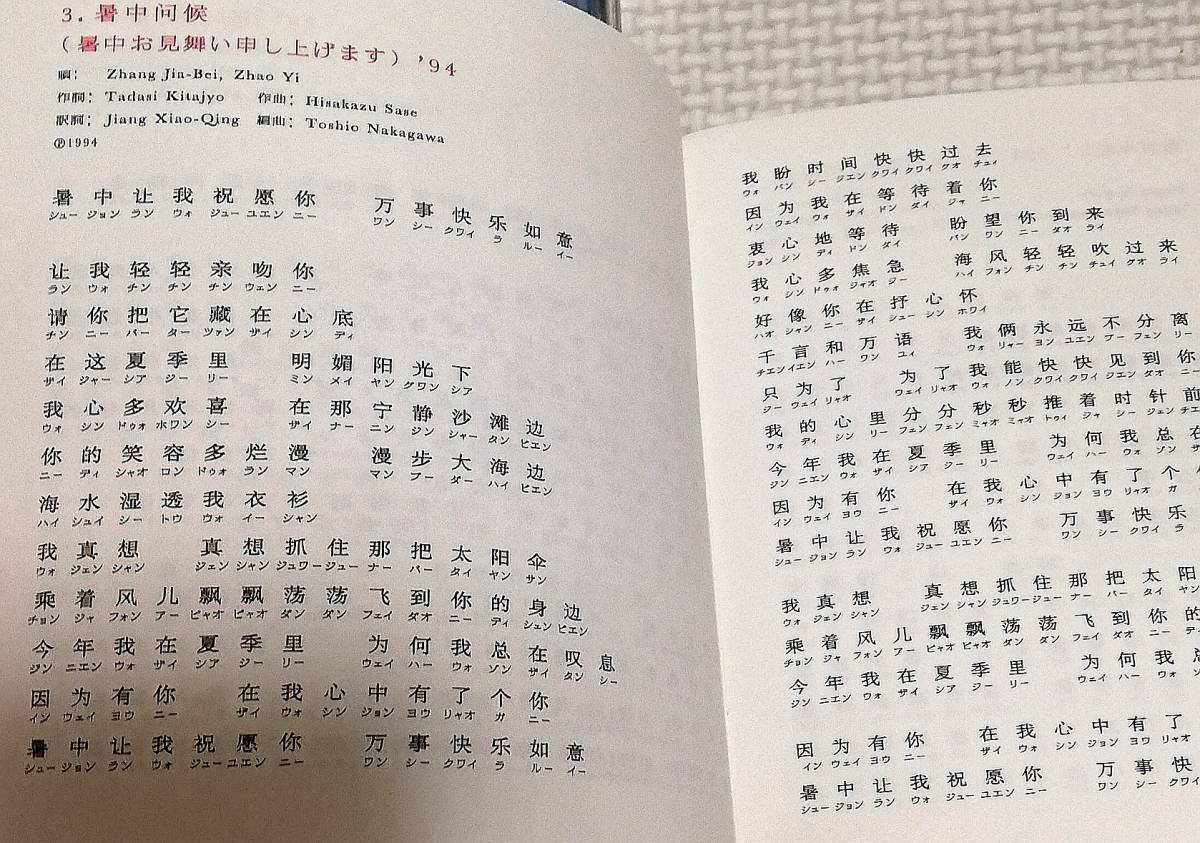 3. 暑中问候
(暑中お見舞い申し上げます) '94
唄: Zhang Jia-Bei, Zhao Yi
作詞: Tadasi Kitajyo 作曲: Hisakazu Sase
訳詞: Jiang Xiao-Qing 編曲: Toshio Nakagawa
Ⓟ1994
暑中让我祝愿你 万事快乐如意
シュー ジョン ラン ウォ ジュー ユエン ニー ワン シー クワイ ラ ルー イー
让我轻轻亲吻你
ラン ウォ チン チン チン ウェン ニー
请你把它藏在心底
チン ニー バー ター ツァン ザイ シン ディ
在这夏季里 明媚阳光下
ザイ ジャー シア ジー リー ミン メイ ヤン クワン シア
我心多欢喜 在那宁静沙滩边
ウォ シン ドゥォ ホワン シー ザイ ナー ニン ジン シャー タン ビエン
你的笑容多烂漫 漫步大海边
ニー ディ シャオ ロン ドゥォ ラン マン マン ブー ダー ハイ ビエン
海水湿透我衣衫
ハイ シュイ シー トウ ウォ イー シャン
我真想 真想抓住那把太阳伞
ウォ ジェン シャン ジェン シャン ジュワー ジュー ナー バー タイ ヤン サン
乘着风儿飘飘荡荡飞到你的身边
チョン ジャ フォン アー ピャオ ピャオ ダン ダン フェイ ダオ ニー ディ シェン ビエン
今年我在夏季里 为何我总在叹息
ジン ニエン ウォ ザイ シア ジー リー ウェイ ハー ウォ ゾン ザイ タン シー
因为有你 在我心中有了个你
イン ウェイ ヨウ ニー ザイ ウォ シン ジョン ヨウ リャオ ガ ニー
暑中让我祝愿你 万事快乐如意
シュー ジョン ラン ウォ ジュー ユエン ニー ワン シー クワイ ラ ルー イー
我盼时间快快过去
ウォ パン シー ジエン クワイ クワイ クオ チュイ
因为我在等待着你
イン ウェイ ウォ ザイ ドン ダイ ジャ ニー
衷心地等待 盼望你到来
ジョン シン ディ ドン ダイ パン ワン ニー ダオ ライ
我心多焦急 海风轻轻吹过来
ウォ シン ドゥォ ジャオ ジー ハイ フォン チン チン チュイ クオ ライ
好像你在抒心怀
ハオ シャン ニー ザイ シュー シン ホワイ
千言和万语 我俩永远不分离
チエン イエン ハー ワン ユイ ウォ リャー ヨン ユエン ブー フェン リー
只为了 为了我能快快见到你
ジー ウェイ リャオ ウェイ リャオ ウォ ノン クワイ クワイ ジエン ダオ ニー
我的心里分分秒秒推着时针前
ウォ ディ シン リー フェン フェン ミャオ ミャオ トゥイ ジャ シー ジェン チエ
今年我在夏季里 为何我总在
ジン ニエン ウォ ザイ シア ジー リー ウェイ ハー ウォ ゾン ザ
因为有你 在我心中有了个
イン ウェイ ヨウ ニー ザイ ウォ シン ジョン ヨウ リャオ ガ
暑中让我祝愿你 万事快乐
シュー ジョン ラン ウォ ジュー ユエン ニー ワン シー クワイ ラ
我真想 真想抓住那把太阳
ウォ ジェン シャン ジェン シャン ジュワー ジュー ナー バー タイ ヤン
乘着风儿飘飘荡荡飞到你的
チョン ジャ フォン アー ピャオ ピャオ ダン ダン フェイ ダオ ニー デ
今年我在夏季里 为何我总
ジン ニエン ウォ ザイ シア ジー リー ウェイ ハー ウォ ゾン
因为有你 在我心中有了
イン ウェイ ヨウ ニー ザイ ウォ シン ジョン ヨウ リャオ
暑中让我祝愿你 万事快
シュー ジョン ラン ウォ ジュー ユエン ニー ワン シー クワイ